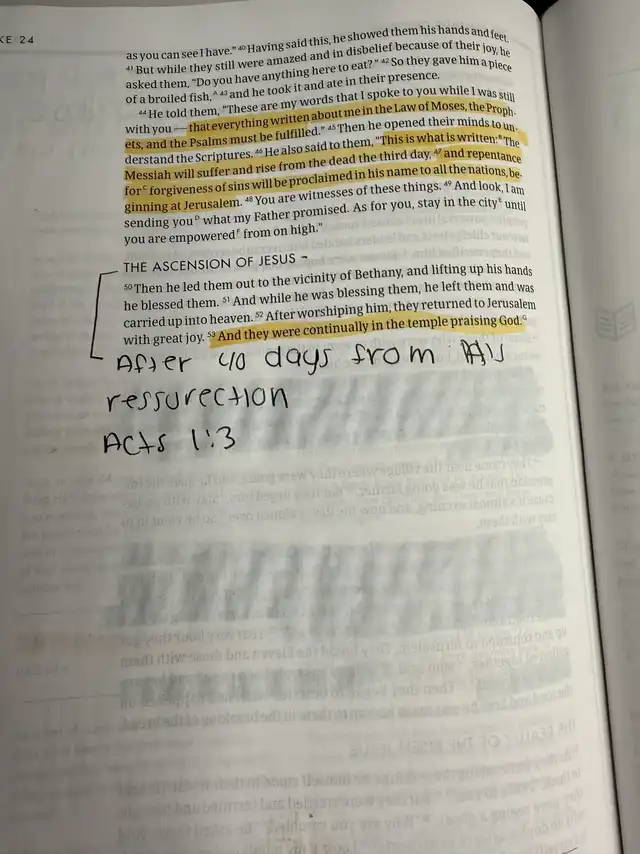 KE 24
as you can see I have." ⁴⁰ Having said this, he showed them his hands and feet.
⁴¹ But while they still were amazed and in disbelief because of their joy, he
asked them, "Do you have anything here to eat?" ⁴² So they gave him a piece
of a broiled fish,ᴬ ⁴³ and he took it and ate in their presence.
⁴⁴ He told them, "These are my words that I spoke to you while I was still
with you — that everything written about me in the Law of Moses, the Proph-
ets, and the Psalms must be fulfilled." ⁴⁵ Then he opened their minds to un-
derstand the Scriptures. ⁴⁶ He also said to them, "This is what is written:ᴮ The
Messiah will suffer and rise from the dead the third day, ⁴⁷ and repentance
forᶜ forgiveness of sins will be proclaimed in his name to all the nations, be-
ginning at Jerusalem. ⁴⁸ You are witnesses of these things. ⁴⁹ And look, I am
sending youᴰ what my Father promised. As for you, stay in the cityᴱ until
you are empoweredᶠ from on high."
THE ASCENSION OF JESUS
⁵⁰ Then he led them out to the vicinity of Bethany, and lifting up his hands
he blessed them. ⁵¹ And while he was blessing them, he left them and was
carried up into heaven. ⁵² After worshiping him, they returned to Jerusalem
with great joy. ⁵³ And they were continually in the temple praising God.ᴳ
After 40 days from His
ressurection
Acts 1:3